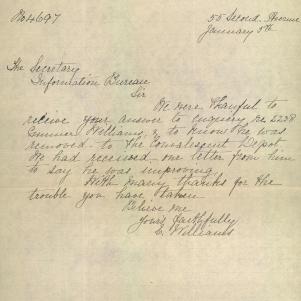 No 4697
55 Second Avenue
January 5th
The Secretary
Information Bureau
Sir
We were thankful to
receive your answer to enquiry re 5238
Gunner Williams, & to know he was
removed to the Convalescent Depot
We had received one letter from him
to say he was improving.
With many thanks for the
trouble you have taken
Believe me
Yours faithfully
E Williams